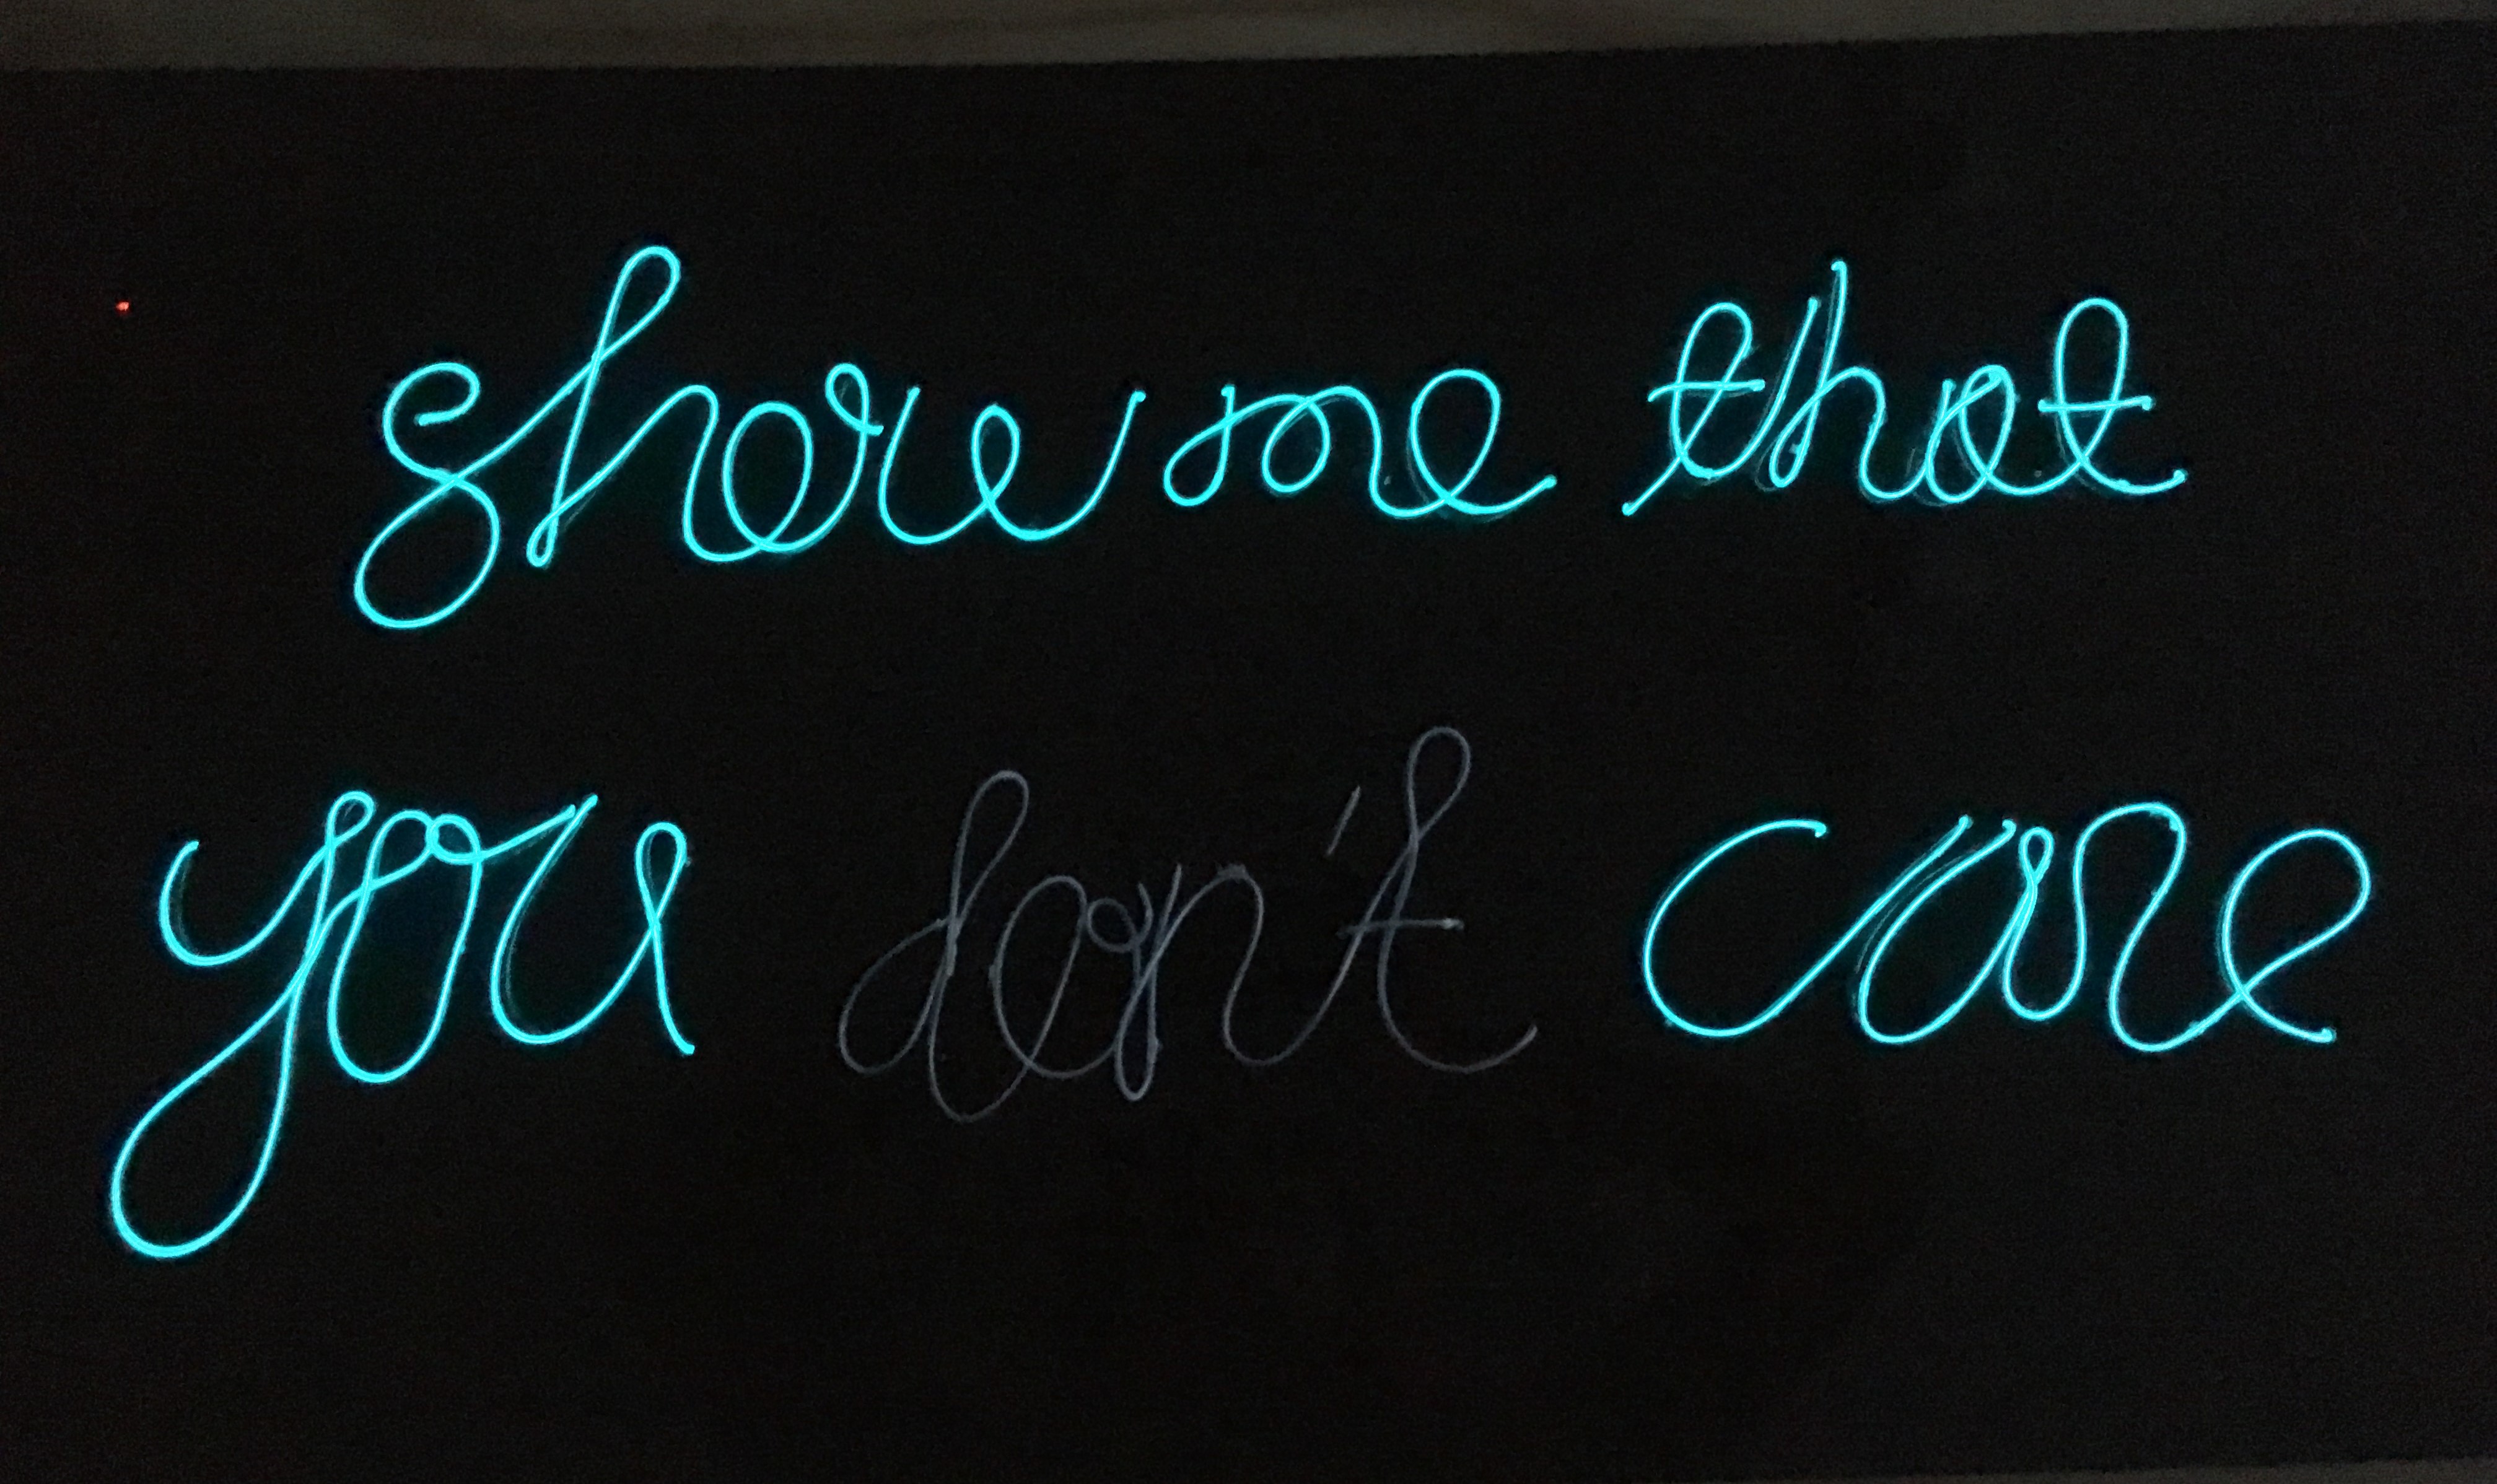 show me that
you don't care